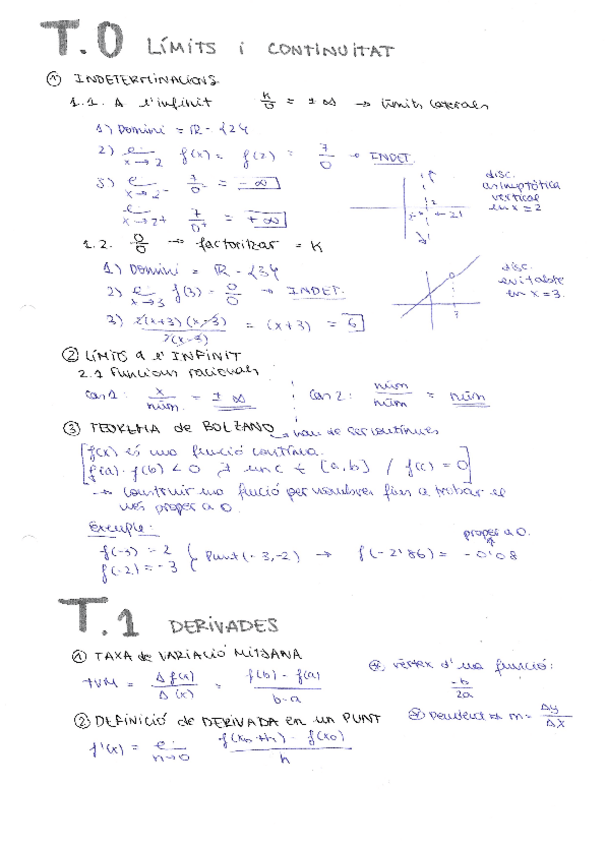 T.0 LÍMITS i CONTINUITAT
① INDETERMINACIONS
1.1. A l'infinit K/0 = ±∞ → límits laterals
1) Domini = R - {2}
2) l. x→2 f(x) = f(2) = 7/0 → INDET.
3) l. x→2⁻ 7/0⁻ = -∞
disc. asimptòtica vertical en x=2
l. x→2⁺ 7/0⁺ = +∞
1.2. 0/0 → factoritzar = K
1) Domini = R - {3}
2) l. x→3 f(3) = 0/0 → INDET.
disc. evitable en x=3.
3) 2(x+3)(x-3)/2(x-3) = (x+3) = 6
② LÍMITS a l'INFINIT
2.1 Funcions racionals
Cas 1: x/núm. = ±∞ Cas 2: núm/núm = núm
③ TEOREMA de BOLZANO → han de ser contínues
f(x) és una funció contínua.
f(a)·f(b) < 0 ∃ un c ∈ [a,b] / f(c) = 0
→ Construir una funció per
més proper a 0.
Exemple:
proper a 0.
f(-3) = 2
f(-2) = -3 } Punt (-3,-2) → f(-2'86) = -0'08
T.1 DERIVADES
① TAXA de VARIACIÓ MITJANA
TVM = Δf(x)/Δ(x) = f(b) - f(a)/b-a
vèrtex d'una funció: -b/2a
② DEFINICIÓ de DERIVADA en un PUNT
Pendent m = Δy/Δx
f'(x) = l. h→0 f(x₀+h) - f(x₀)/h